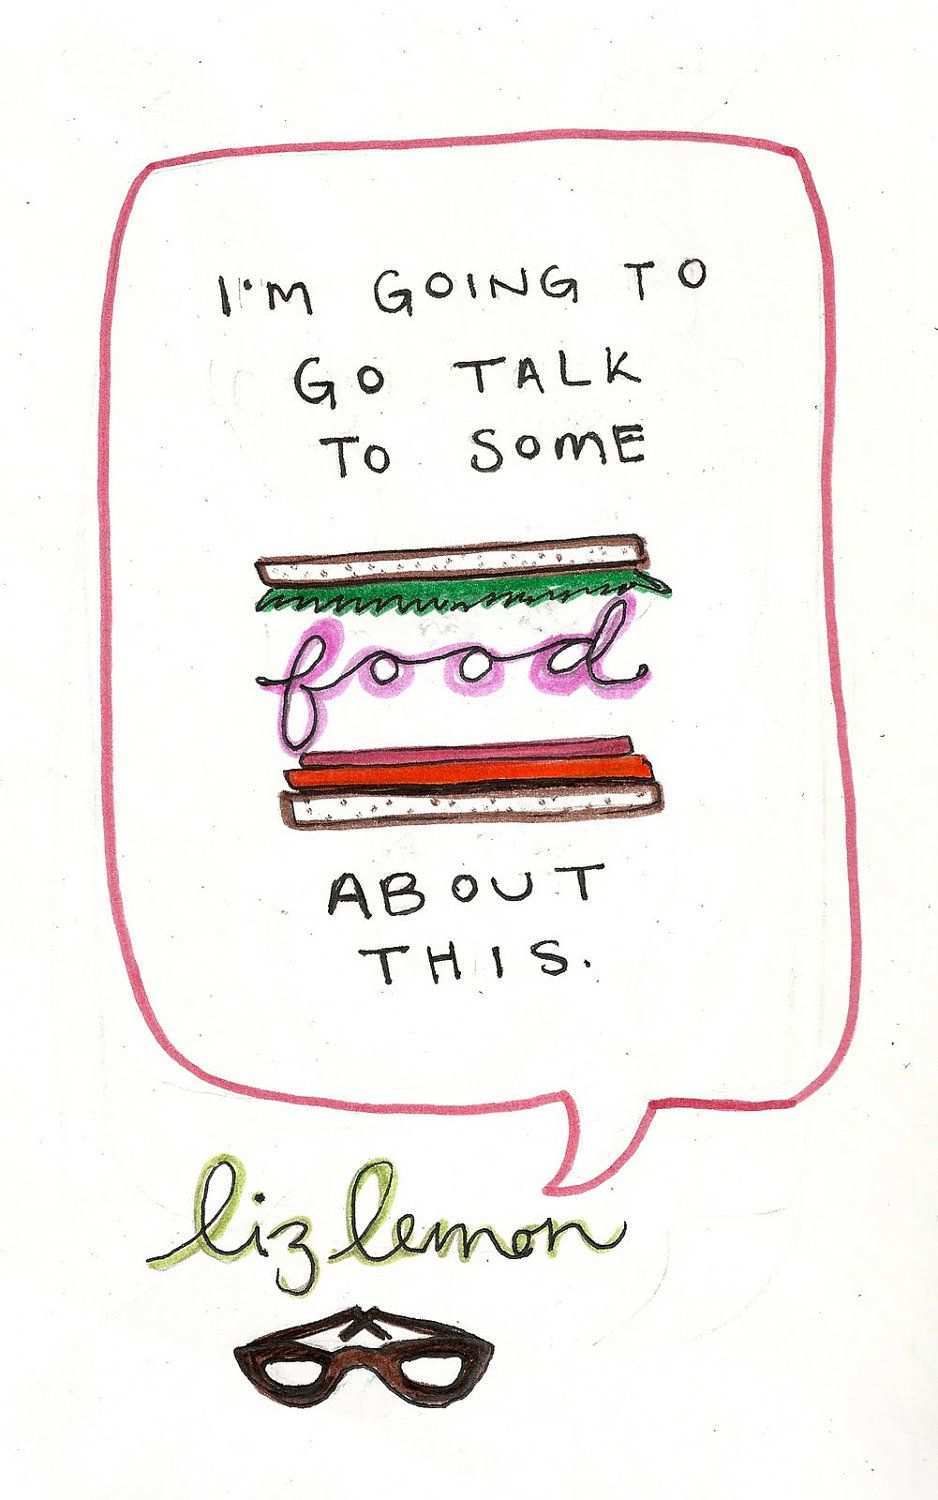 I'M GOING TO
GO TALK
TO SOME
food
ABOUT
THIS.
liz lemon